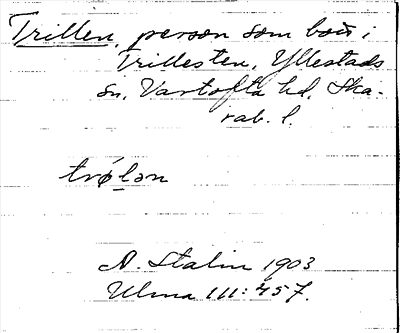 Trillen, person som bott i
Trillesten, Yllestads
sn, Vartofta hd, Ska-
rab. l.
trø̀lən
A. Stalin 1903
Ulma 111:457.